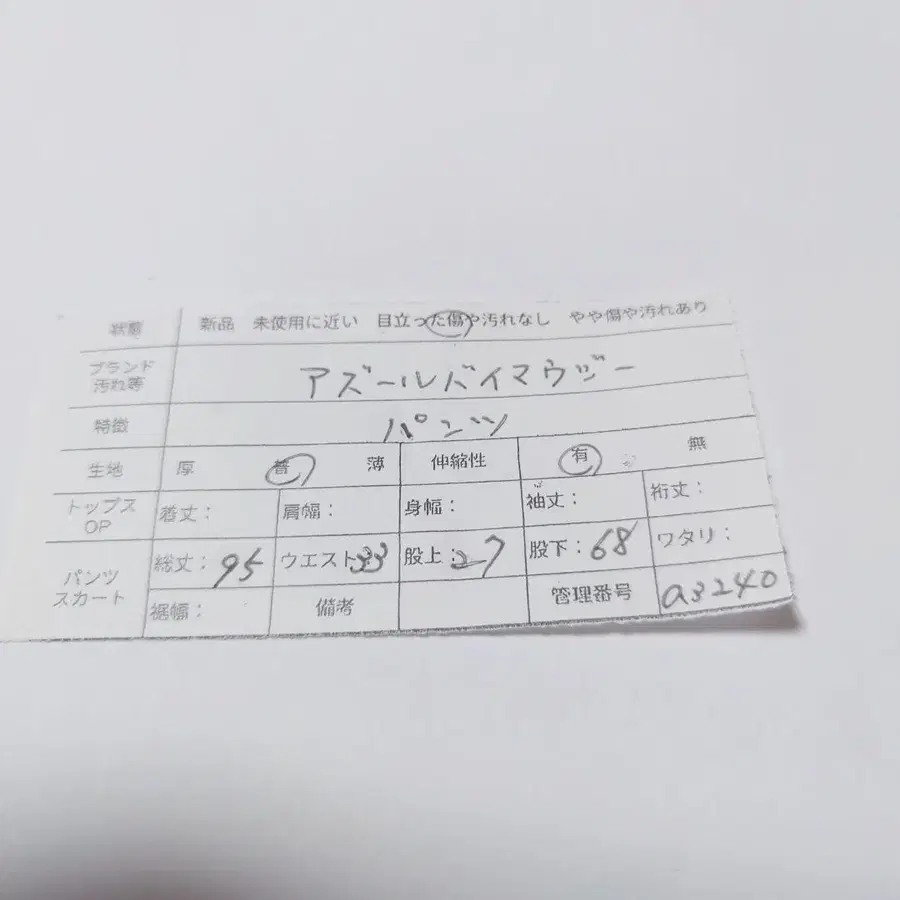 状態 新品 未使用に近い 目立った傷や汚れなし やや傷や汚れあり
ブランド
汚れ等
アズールバイマウジー
特徴 パンツ
生地 厚 普 薄 伸縮性 有 無
トップス
OP
着丈： 肩幅： 身幅： 袖丈： 裄丈：
パンツ
スカート
総丈：95 ウエスト：33 股上：27 股下：68 ワタリ：
裾幅： 備考 管理番号 a3240